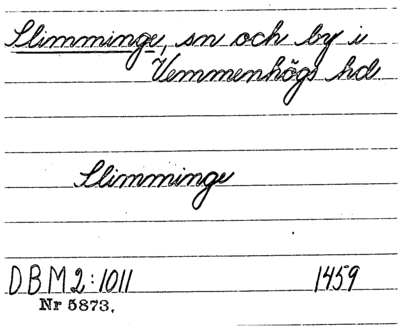 Slimminge, sn och by i
Vemmenhögs hd
Slimminge
DBM2:1011 1459
Nr 5873.